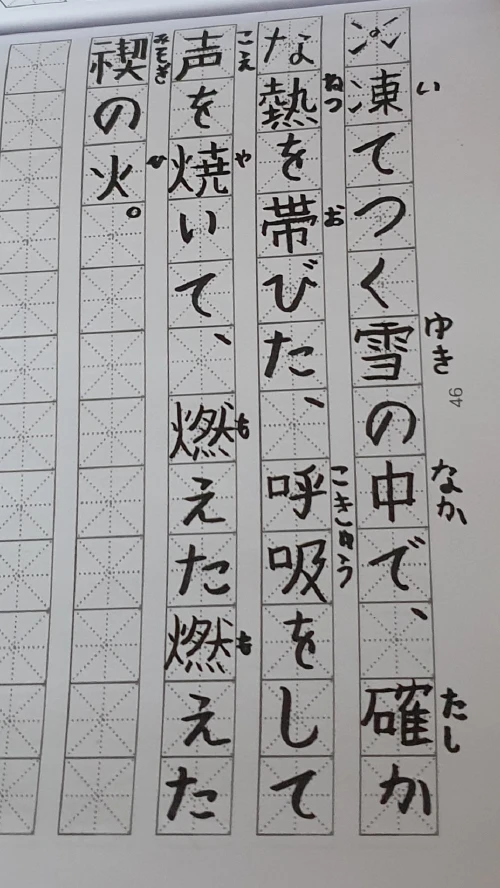 46
い ゆき なか たし
凍てつく雪の中で、確か
ねつ お こきゅう
な熱を帯びた、呼吸をして
こえ や も も
声を焼いて、燃えた燃えた
みそぎ ひ
禊の火。